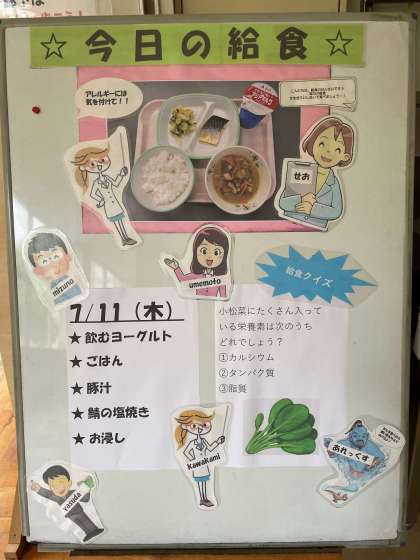 ☆今日の給食☆
アレルギーには
気を付けて！！
せお
mizuno
umemoto
給食クイズ
7/11（木）
★飲むヨーグルト
★ごはん
★豚汁
★鯖の塩焼き
★お浸し
小松菜にたくさん入って
いる栄養素は次のうち
どれでしょう？
①カルシウム
②タンパク質
③脂質
Kawakami
あれっくす